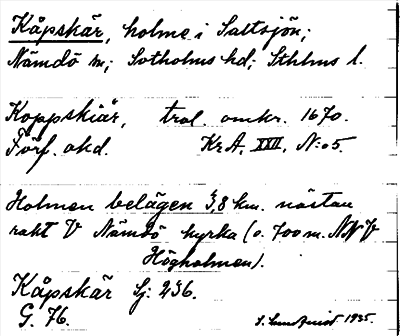 Kåpskär, holme i Saltsjön;
Nämdö sn; Sotholms hd; Sthlms l.
Koppskiär, trol. omkr. 1670.
Förf. okd. Kr A. XXII, N:o 5.
Holmen belägen 3,8 km. nästan
rakt V Nämdö kyrka (o. 700 m. NNV
Högholmen).
Kåpskär Sj: 236.
G. 76. S. Lundqvist 1935.